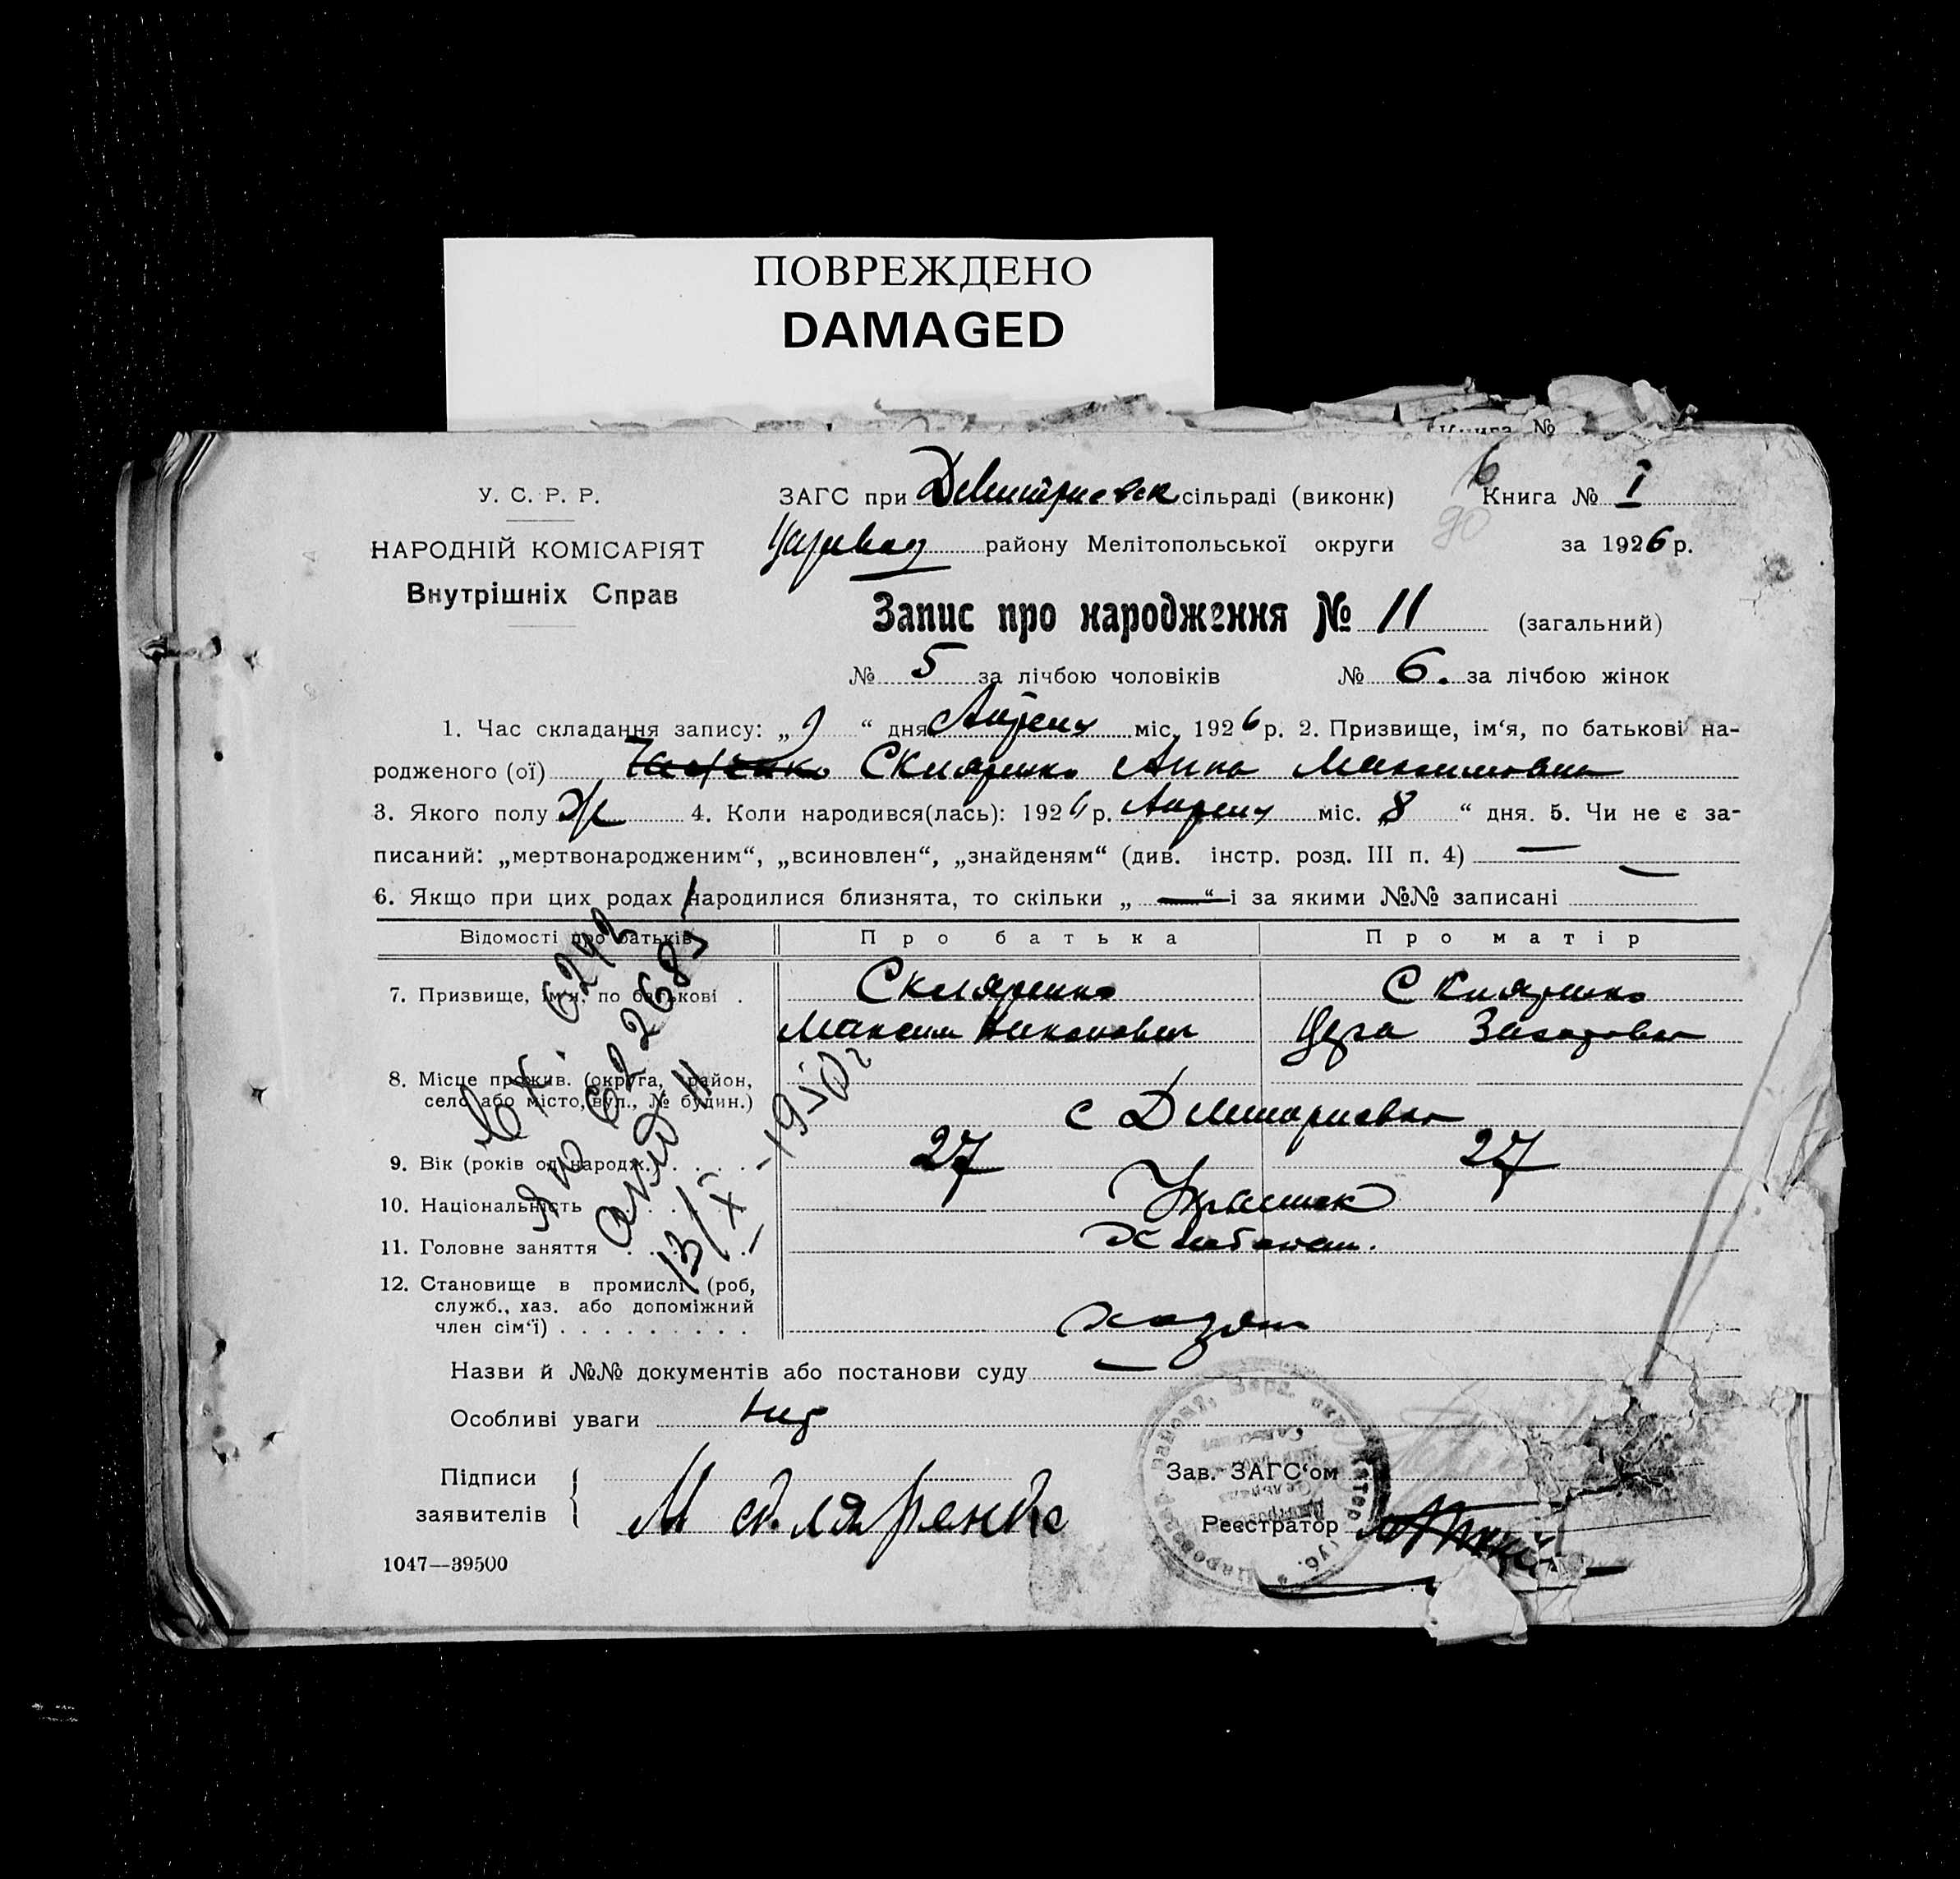 ПОВРЕЖДЕНО
DAMAGED
Книга №
У. С. Р. Р.
НАРОДНІЙ КОМІСАРІЯТ
Внутрішніх Справ
ЗАГС при Дмитриевск сільраді (виконк)
району Мелітопольської округи
6
90
Книга № I
за 1926 р.
Запис про народження № 11 (загальний)
№ 5 за лічбою чоловіків № 6. за лічбою жінок
1. Час складання запису: „ 9 “ дня Апреля міс. 1926 р. 2. Призвище, ім‘я, по батькові на-
родженого (ої) Скляренко Анна Максимовна
3. Якого полу Ж 4. Коли народився(лась): 1926 р. Апреля міс. „8 “ дня. 5. Чи не є за-
писаний: „мертвонародженим“, „всиновлен“, „знайденям“ (див. інстр. розд. III п. 4) —
6. Якщо при цих родах народилися близнята, то скільки „ — “ і за якими №№ записані
Відомості про батьків Про батька Про матір
7. Призвище, ім‘я, по батькові . Скляренко Скляренко
Максим Никонович Захаровна
8. Місце прожив. (округа, район,
село або місто, вул., № будин.)
с Дмитриевка
9. Вік (років од народж.) . . . . 27 27
10. Національність
11. Головне заняття
12. Становище в промислі (роб,
служб., хаз. або допоміжний
член сім‘ї) . . . . . . . . . хозяин
Назви й №№ документів або постанови суду —
Особливі уваги
Підписи
заявителів
М скляренко
Зав. ЗАГС‘ом
Реєстратор
1047—39500